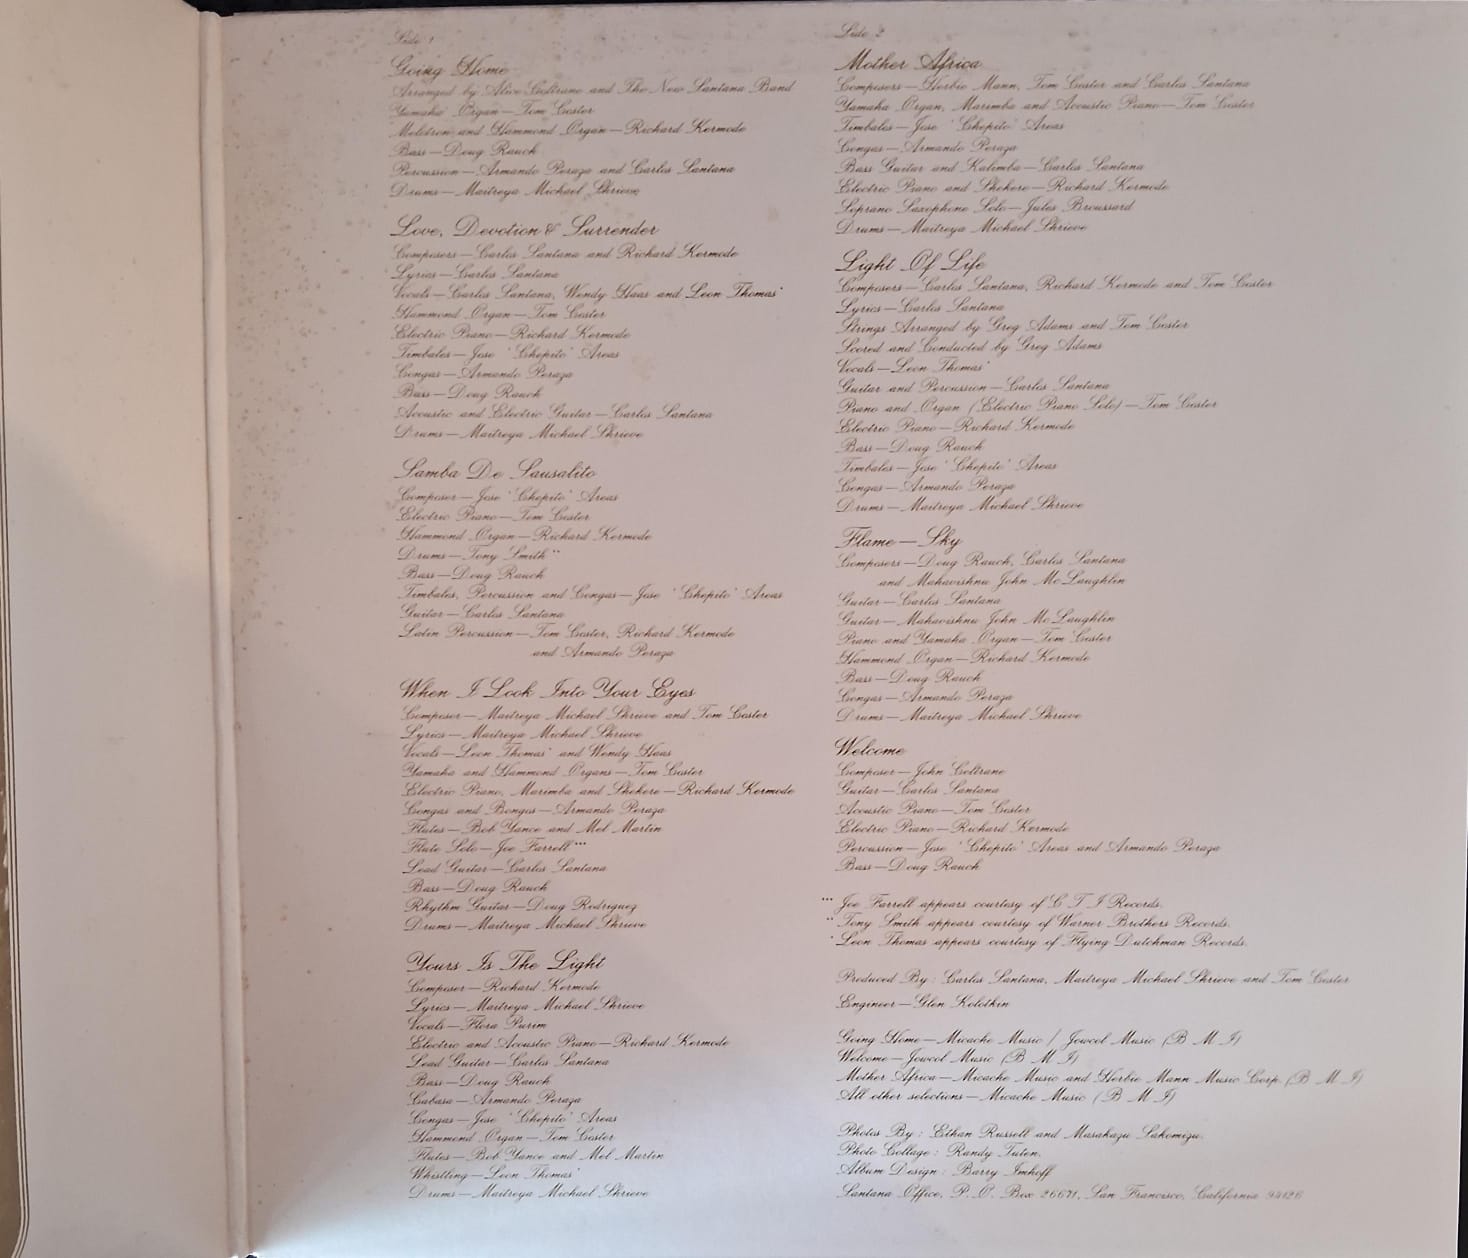 Side 1
Going Home
Arranged by Alice Coltrane and The New Santana Band
Yamaha Organ—Tom Coster
Melotron and Hammond Organ—Richard Kermode
Bass—Doug Rauch
Percussion—Armando Peraza and Carlos Santana
Drums—Maitreya Michael Shrieve
Love, Devotion & Surrender
Composers—Carlos Santana and Richard Kermode
Lyrics—Carlos Santana
Vocals—Carlos Santana, Wendy Haas and Leon Thomas*
Hammond Organ—Tom Coster
Electric Piano—Richard Kermode
Timbales—Jose 'Chepito' Areas
Congas—Armando Peraza
Bass—Doug Rauch
Acoustic and Electric Guitar—Carlos Santana
Drums—Maitreya Michael Shrieve
Samba De Sausalito
Composer—Jose 'Chepito' Areas
Electric Piano—Tom Coster
Hammond Organ—Richard Kermode
Drums—Tony Smith**
Bass—Doug Rauch
Timbales, Percussion and Congas—Jose 'Chepito' Areas
Guitar—Carlos Santana
Latin Percussion—Tom Coster, Richard Kermode
and Armando Peraza
When I Look Into Your Eyes
Composer—Maitreya Michael Shrieve and Tom Coster
Lyrics—Maitreya Michael Shrieve
Vocals—Leon Thomas* and Wendy Haas
Yamaha and Hammond Organs—Tom Coster
Electric Piano, Marimba and Shekere—Richard Kermode
Congas and Bongos—Armando Peraza
Flutes—Bob Yance and Mel Martin
Flute Solo—Joe Farrell***
Lead Guitar—Carlos Santana
Bass—Doug Rauch
Rhythm Guitar—Doug Rodriguez
Drums—Maitreya Michael Shrieve
Yours Is The Light
Composer—Richard Kermode
Lyrics—Maitreya Michael Shrieve
Vocals—Flora Purim
Electric and Acoustic Piano—Richard Kermode
Lead Guitar—Carlos Santana
Bass—Doug Rauch
Cabasa—Armando Peraza
Congas—Jose 'Chepito' Areas
Hammond Organ—Tom Coster
Flutes—Bob Yance and Mel Martin
Whistling—Leon Thomas*
Drums—Maitreya Michael Shrieve
Side 2
Mother Africa
Composers—Herbie Mann, Tom Coster and Carlos Santana
Yamaha Organ, Marimba and Acoustic Piano—Tom Coster
Timbales—Jose 'Chepito' Areas
Congas—Armando Peraza
Bass Guitar and Kalimba—Carlos Santana
Electric Piano and Shekere—Richard Kermode
Soprano Saxophone Solo—Jules Broussard
Drums—Maitreya Michael Shrieve
Light Of Life
Composers—Carlos Santana, Richard Kermode and Tom Coster
Lyrics—Carlos Santana
Strings Arranged by Greg Adams and Tom Coster
Scored and Conducted by Greg Adams
Vocals—Leon Thomas*
Guitar and Percussion—Carlos Santana
Piano and Organ (Electric Piano Solo)—Tom Coster
Electric Piano—Richard Kermode
Bass—Doug Rauch
Timbales—Jose 'Chepito' Areas
Congas—Armando Peraza
Drums—Maitreya Michael Shrieve
Flame—Sky
Composers—Doug Rauch, Carlos Santana
and Mahavishnu John McLaughlin
Guitar—Carlos Santana
Guitar—Mahavishnu John McLaughlin
Piano and Yamaha Organ—Tom Coster
Hammond Organ—Richard Kermode
Bass—Doug Rauch
Congas—Armando Peraza
Drums—Maitreya Michael Shrieve
Welcome
Composer—John Coltrane
Guitar—Carlos Santana
Acoustic Piano—Tom Coster
Electric Piano—Richard Kermode
Percussion—Jose 'Chepito' Areas and Armando Peraza
Bass—Doug Rauch
***Joe Farrell appears courtesy of C T I Records.
**Tony Smith appears courtesy of Warner Brothers Records.
*Leon Thomas appears courtesy of Flying Dutchman Records.
Produced By: Carlos Santana, Maitreya Michael Shrieve and Tom Coster
Engineer—Glen Kolotkin
Going Home—Micache Music / Jowcol Music (B M I)
Welcome—Jowcol Music (B M I)
Mother Africa—Micache Music and Herbie Mann Music Corp. (B M I)
All other selections—Micache Music (B M I)
Photos By: Ethan Russell and Masakazu Sakomizu.
Photo Collage: Randy Tuten.
Album Design: Barry Imhoff
Santana Office, P. O. Box 26671, San Francisco, California 94126